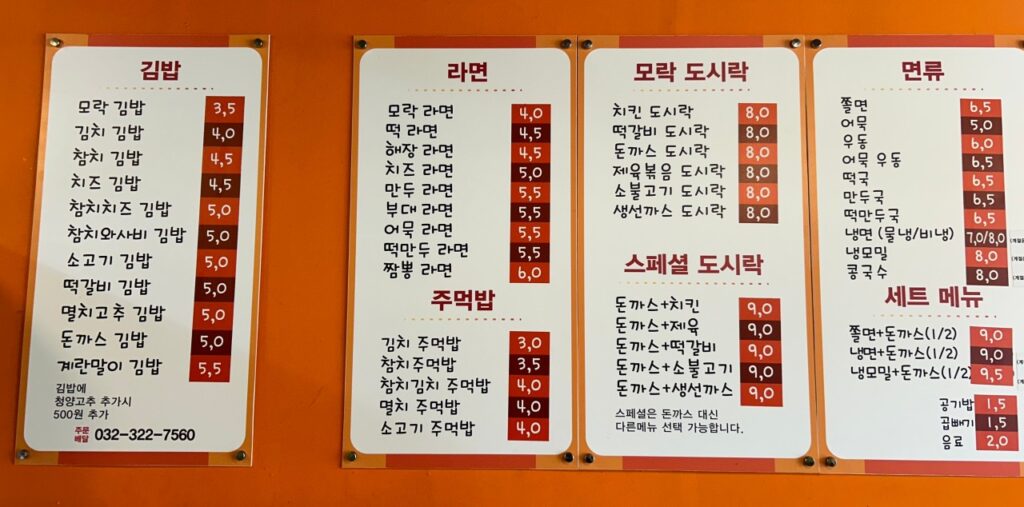 김밥
모락 김밥 3,5
김치 김밥 4,0
참치 김밥 4,5
치즈 김밥 4,5
참치치즈 김밥 5,0
참치와사비 김밥 5,0
소고기 김밥 5,0
떡갈비 김밥 5,0
멸치고추 김밥 5,0
돈까스 김밥 5,0
계란말이 김밥 5,5
김밥에
청양고추 추가시
500원 추가
주문 배달 032-322-7560
라면
모락 라면 4,0
떡 라면 4,5
해장 라면 4,5
치즈 라면 5,0
만두 라면 5,5
부대 라면 5,5
어묵 라면 5,5
떡만두 라면 5,5
짬뽕 라면 6,0
주먹밥
김치 주먹밥 3,0
참치주먹밥 3,5
참치김치 주먹밥 4,0
멸치 주먹밥 4,0
소고기 주먹밥 4,0
모락 도시락
치킨 도시락 8,0
떡갈비 도시락 8,0
돈까스 도시락 8,0
제육볶음 도시락 8,0
소불고기 도시락 8,0
생선까스 도시락 8,0
스페셜 도시락
돈까스+치킨 9,0
돈까스+제육 9,0
돈까스+떡갈비 9,0
돈까스+소불고기 9,0
돈까스+생선까스 9,0
스페셜은 돈까스 대신
다른메뉴 선택 가능합니다.
면류
쫄면 6,5
어묵 5,0
우동 6,0
어묵 우동 6,5
떡국 6,5
만두국 6,5
떡만두국 6,5
냉면 (물냉/비냉) 7,0/8,0
냉모밀 8,0
콩국수 8,0
세트 메뉴
쫄면+돈까스(1/2) 9,0
냉면+돈까스(1/2) 9,0
냉모밀+돈까스(1/2) 9,5
공기밥 1,5
곱빼기 1,5
음료 2,0